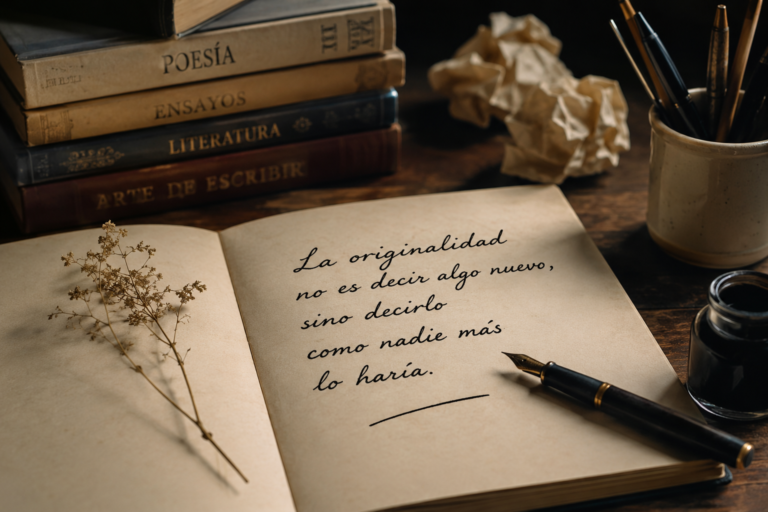 POESÍA
ENSAYOS
LITERATURA
ARTE DE ESCRIBIR
La originalidad
no es decir algo nuevo,
sino decirlo
como nadie más
lo haría.